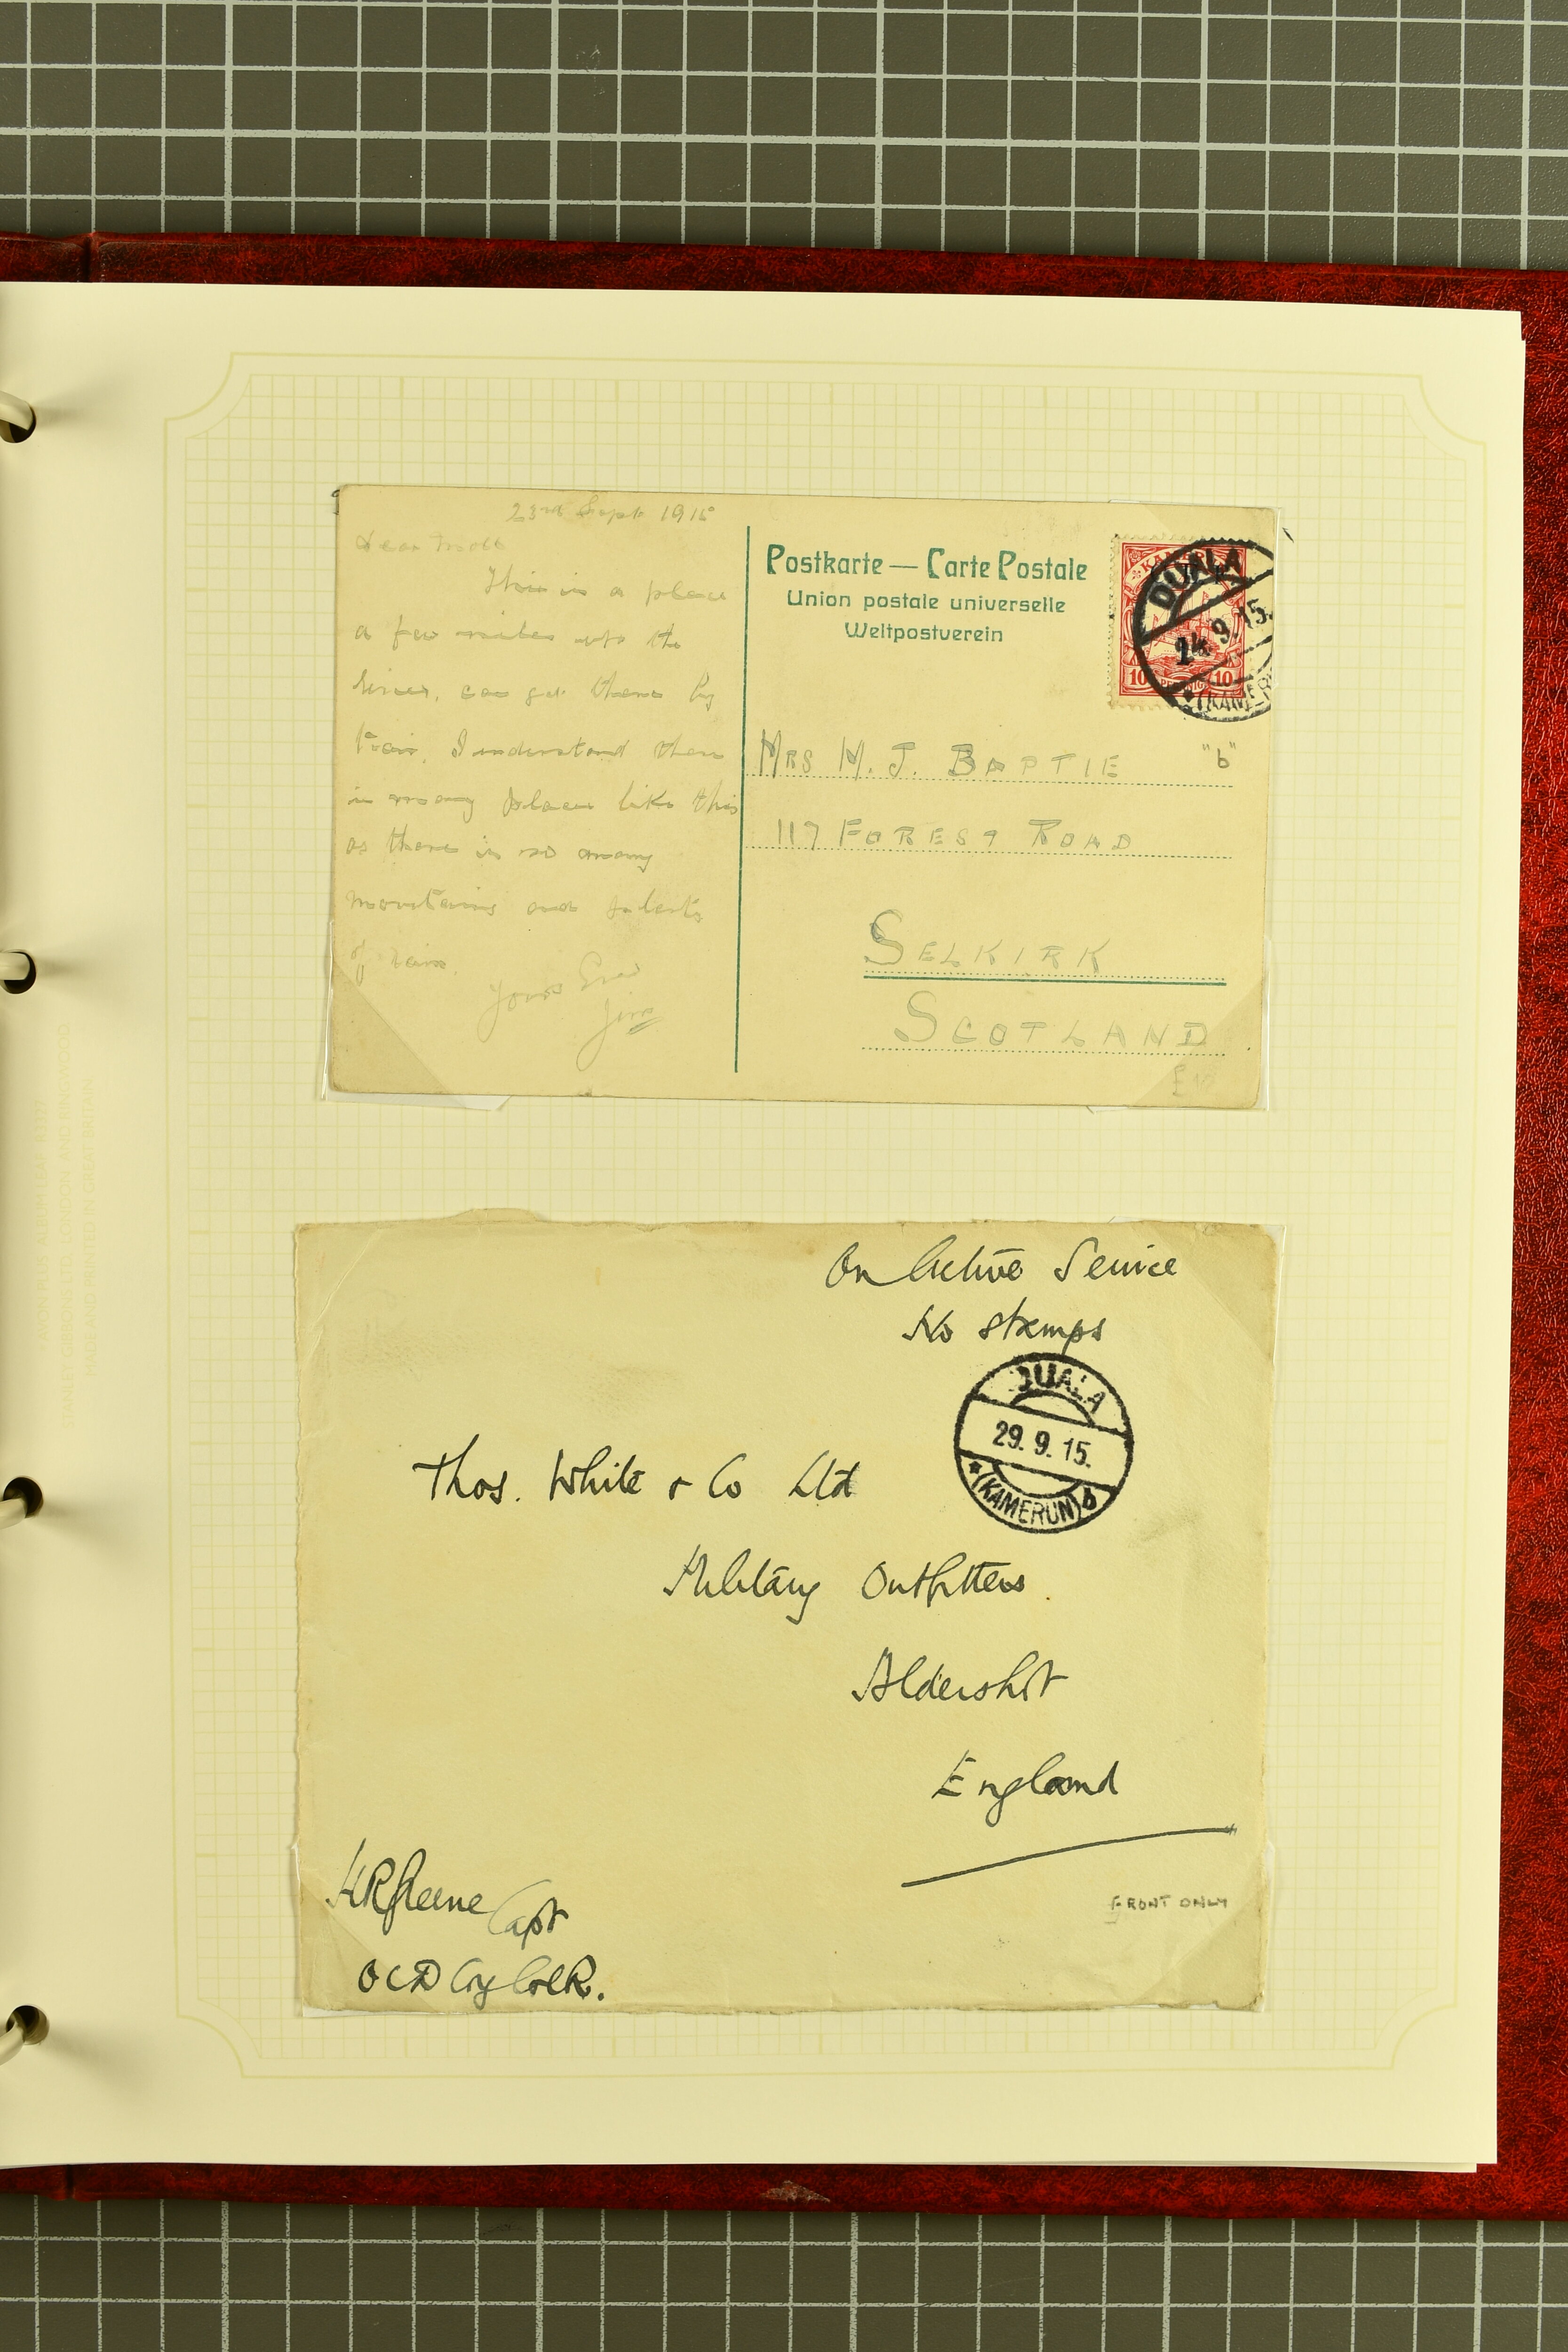 23rd Sept 1915
Dear
This is a place
a few miles up the
River, can get there by
train, I understand there
is many places like this
as there is so many
mountains and plenty
of rain.
Yours Ever
Jim
Postkarte — Carte Postale
Union postale universelle
Weltpostverein
KAMERUN
10 PFENNIG 10
DUALA
24.9.15.
(KAMER
MRS M. J. BAPTIE
"b"
117 FOREST ROAD
SELKIRK
SCOTLAND
£10
On Active Service
No stamps
DUALA
29. 9. 15.
*(KAMERUN) b
Thos. White & Co Ltd
Military Outfitters
Aldershot
England
FRONT ONLY
Capt
OC D Coy
MADE AND PRINTED IN GREAT BRITAIN